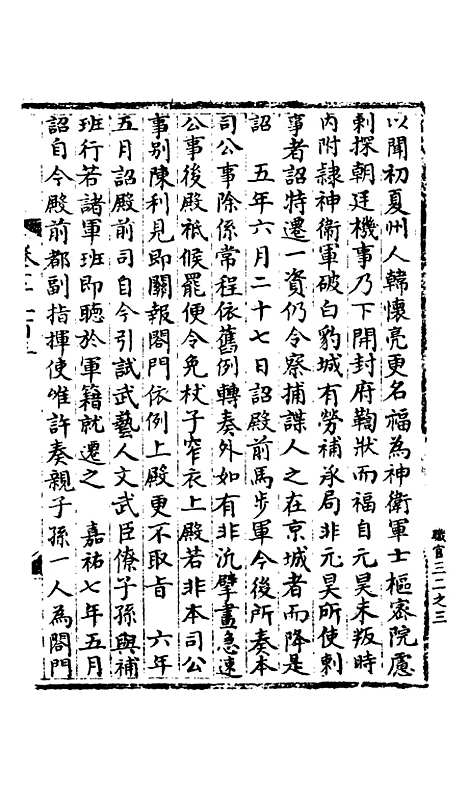 以聞初夏州人韓懷亮更名福為神衛軍士樞密院慮
刺探朝廷機事乃下開封府鞫狀而福自元昊未叛時
內附隷神衛軍破白豹城有勞補承局非元昊所使刺
事者詔特遷一資仍令察捕諜人之在京城者而降是
詔　五年六月二十七日詔殿前馬步軍今後所奏本
司公事除係常程依舊例轉奏外如有非汎擘畫急速
公事後殿祗候罷便令免杖子窄衣上殿若非本司公
事别陳利見即關報閤門依例上殿更不取旨　六年
五月詔殿前司自今引試武藝人文武臣僚子孫與補
班行若諸軍班即聽於軍籍就遷之　嘉祐七年五月
詔自今殿前都副指揮使唯許奏親子孫一人為閤門
職官三二之三